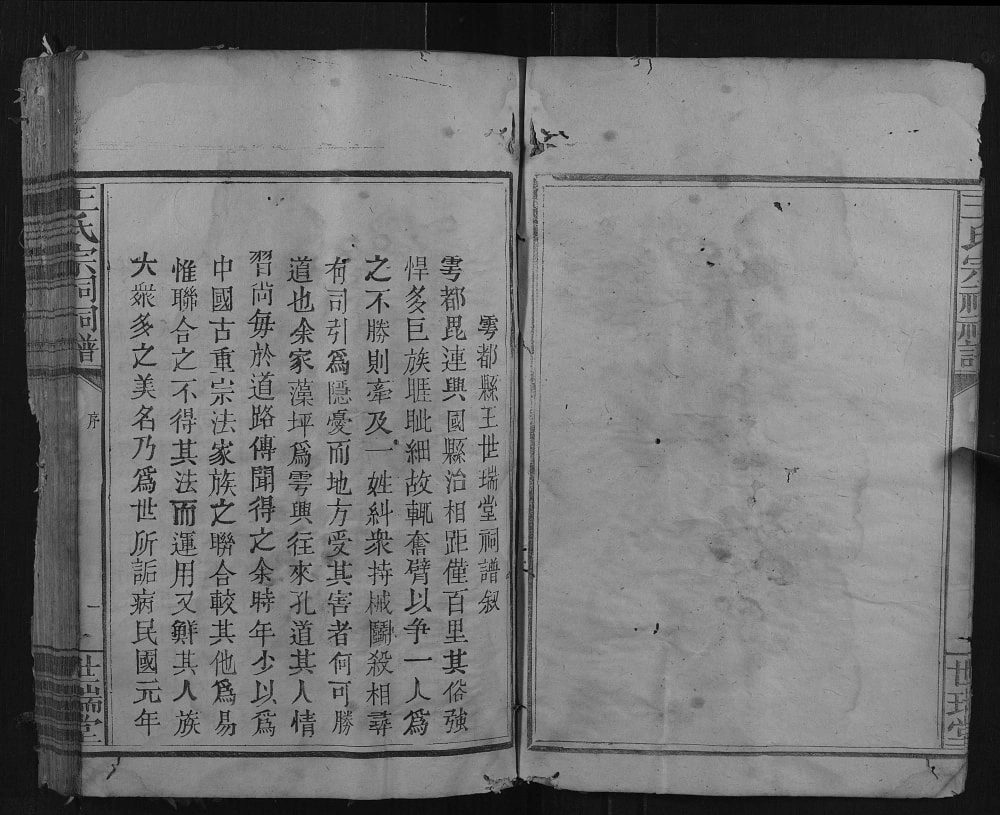 王氏宗祠祠譜
世瑞堂
雩都縣王世瑞堂祠譜叙
雩都毘連興國縣治相距僅百里其俗強
悍多巨族睚眦細故輒奮臂以爭一人爲
之不勝則牽及一姓糾衆持械鬭殺相尋
有司引爲隱憂而地方受其害者何可勝
道也余家藻坪爲雩興往來孔道其人情
習尚每於道路傳聞得之余時年少以爲
中國古重宗法家族之聯合較其他爲易
惟聯合之不得其法而運用又鮮其人族
大衆多之美名乃爲世所詬病民國元年
王氏宗祠祠譜
序
一
世瑞堂